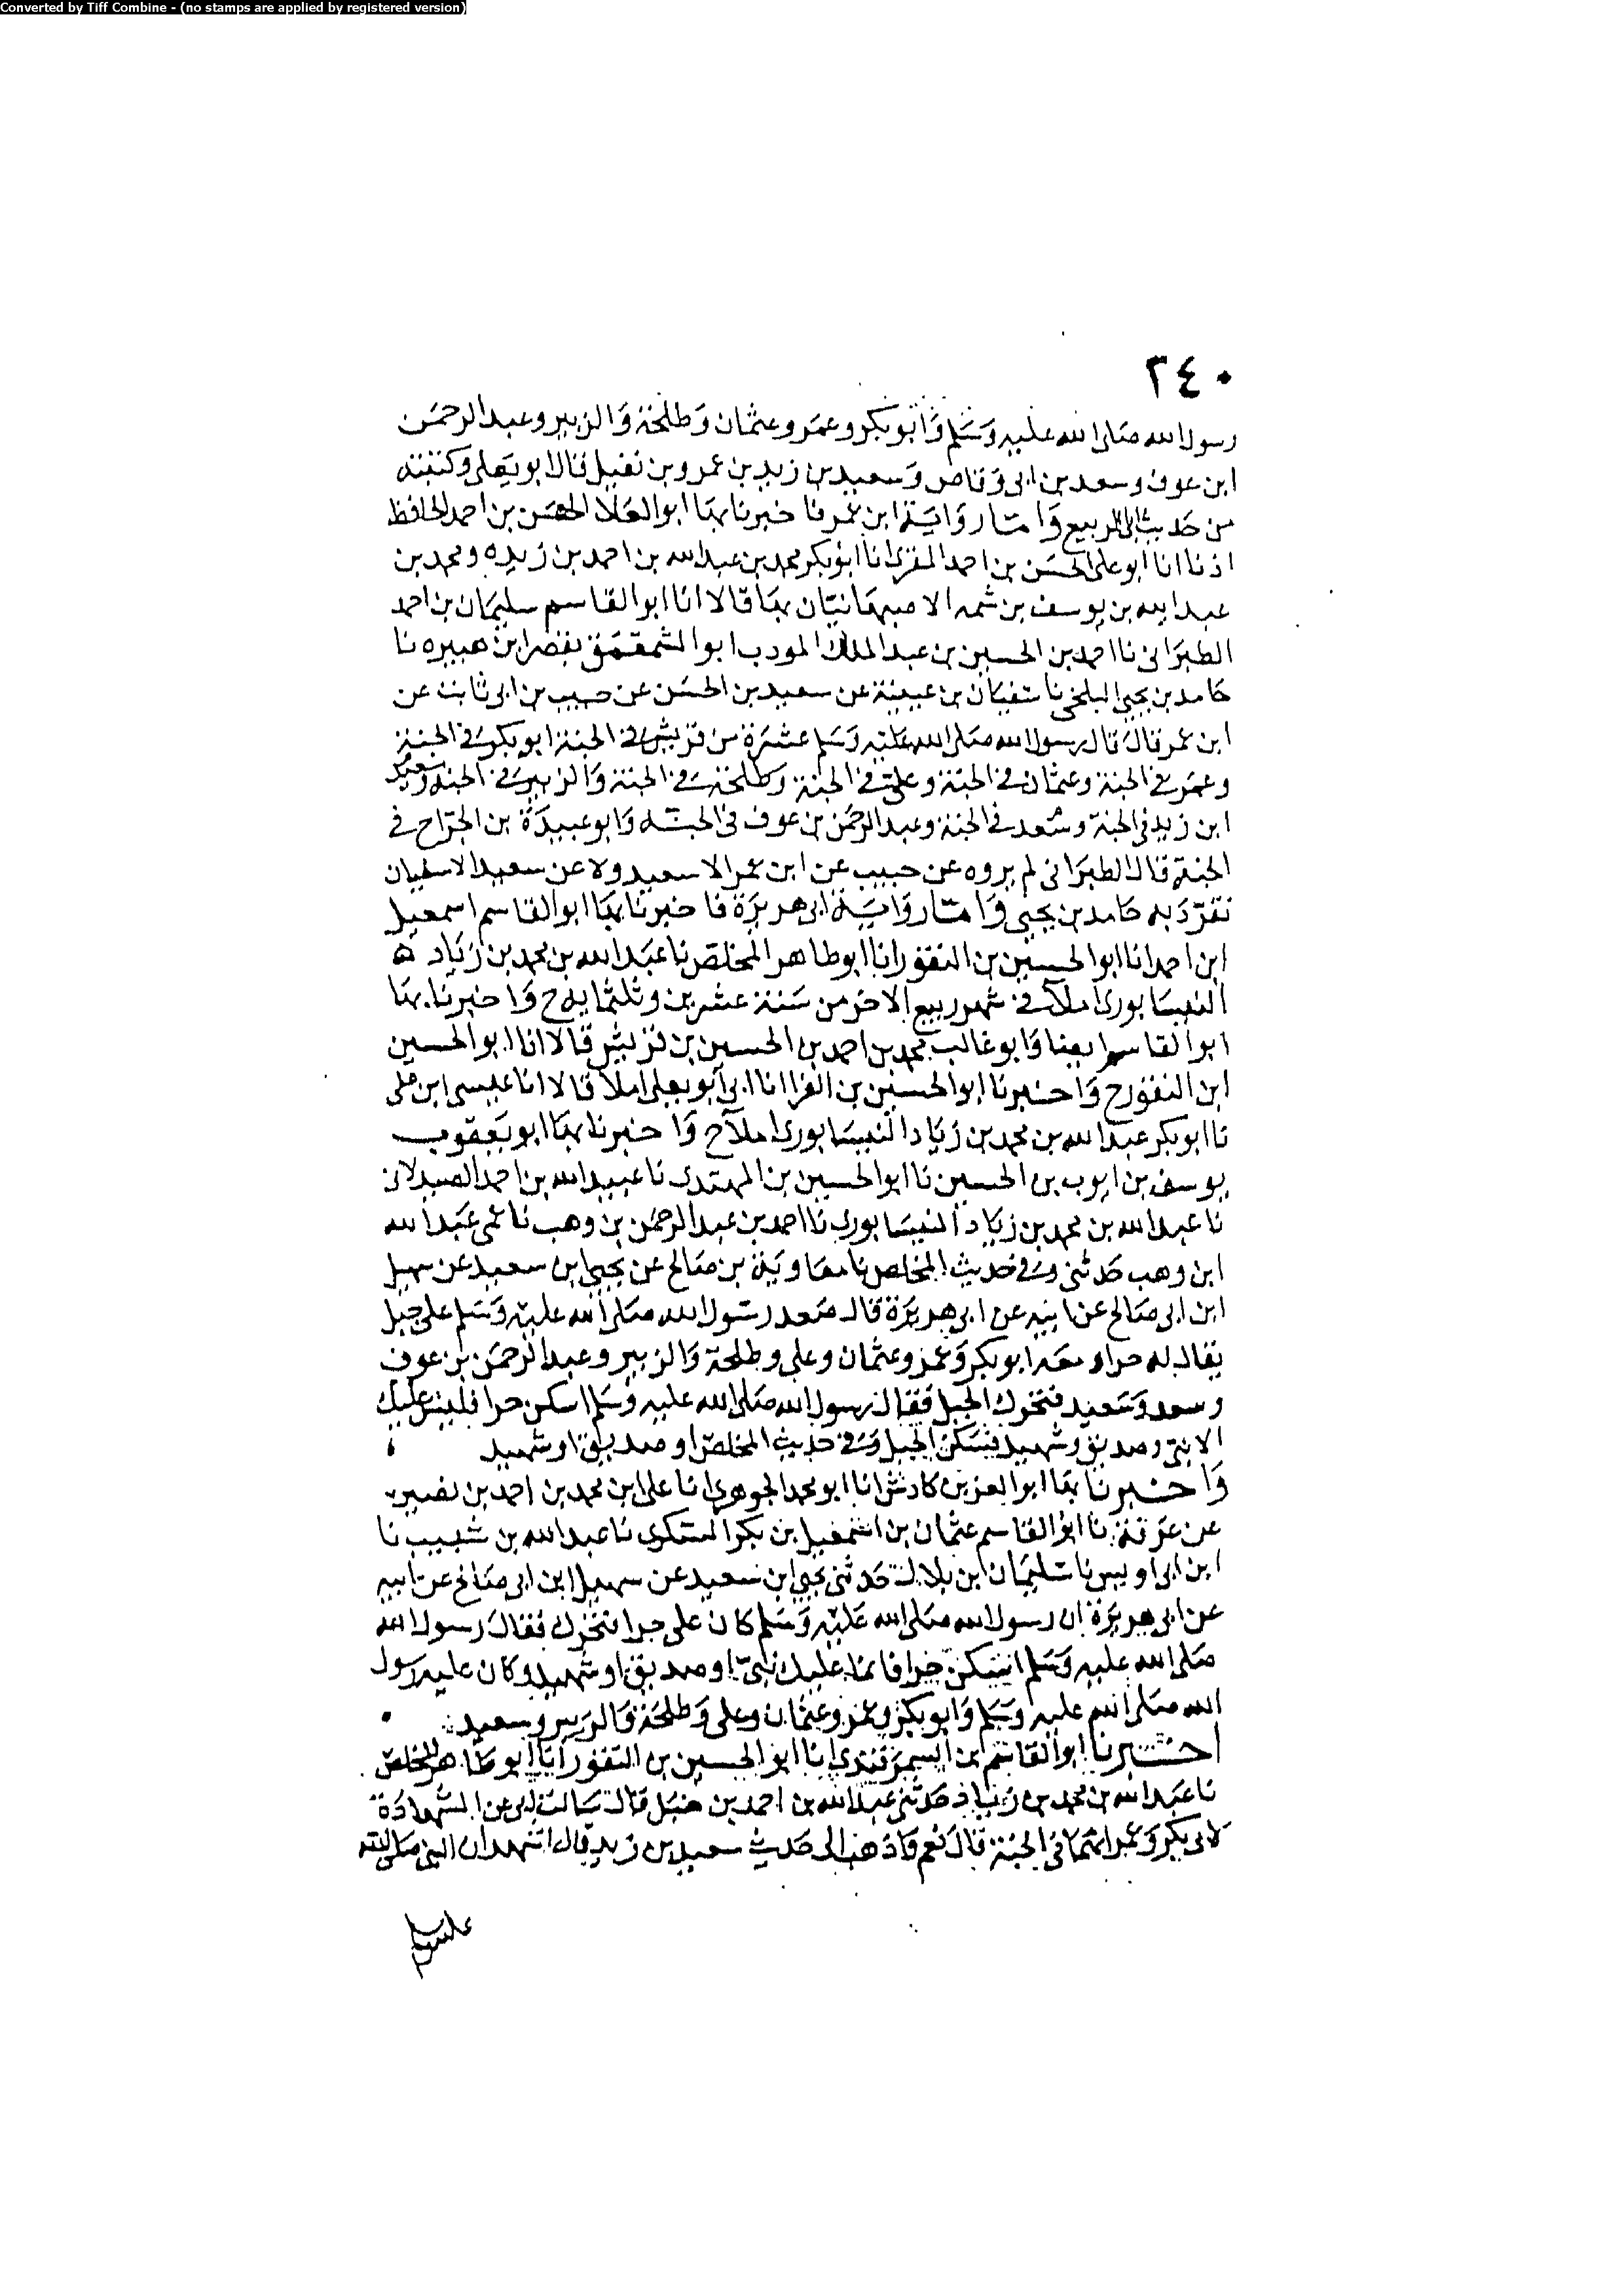 Converted by Tiff Combine - (no stamps are applied by registered version)
٢٤٠
رسول الله صلى الله عليه وسلم وابو بكر وعمر وعثمان وطلحة والزبير وعبد الرحمن
ابن عوف وسعد بن ابى وقاص وسعيد بن زيد بن عمرو بن نفيل قال ابو يعلى وكتبته
من حديث ابى الربيع واما رواية ابن عمر فاخبرنا بها ابو العلا الحسن بن احمد الحافظ
اذنا انا ابو على الحسن بن احمد المقرى انا ابو بكر محمد بن عبد الله بن احمد بن زيده ومحمد بن
عبد الله بن يوسف بن شمه الاصبهانيان بها قالا انا ابو القاسم سليمان بن احمد
الطبرانى نا احمد بن الحسين بن عبد الملك المودب ابو الشمقمق بقصر ابن هبيره نا
حامد بن يحيى البلخى نا سفيان بن عيينة عن سعيد بن الحسن عن حبيب بن ابى ثابت عن
ابن عمر قال قال رسول الله صلى الله عليه وسلم عشرة من قريش فى الجنة ابو بكر فى الجنة
وعمر فى الجنة وعثمان فى الجنة وعلى فى الجنة وطلحة فى الجنة والزبير فى الجنة وسعيد
ابن زيد فى الجنة وسعد فى الجنة وعبد الرحمن بن عوف فى الجنة وابو عبيدة بن الجراح فى
الجنة قال الطبرانى لم يروه عن حبيب عن ابن عمر الا سعيد ولا عن سعيد الا سفيان
تفرد به حامد بن يحيى واما رواية ابى هريرة فاخبرنا بها ابو القاسم اسمعيل
ابن احمد انا ابو الحسين بن النقور انا ابو طاهر المخلص نا عبد الله بن محمد بن زياد ه
النيسابورى املآ فى شهر ربيع الاخر من سنة عشرين وثلثمايه ح واخبرنا بها
ابو القاسم ايضا وابو غالب محمد بن احمد بن الحسين بن قريش قالا انا ابو الحسين
ابن النقور ح واخبرنا ابو الحسين بن الفرا انا ابى ابو يعلى املا قالا انا عيسى ابن على
نا ابو بكر عبد الله بن محمد بن زياد النيسابورى املآ ح واخبرنا بها ابو يعقوب
يوسف بن ايوب بن الحسين نا ابو الحسين بن المهتدى نا عبيد الله بن احمد الصيدلانى
نا عبد الله بن محمد بن زياد النيسابورى نا احمد بن عبد الرحمن بن وهب نا عمى عبد الله
ابن وهب حدثنى وفى حديث المخلص نا معاوية بن صالح عن يحيى ابن سعيد عن سهيل
ابن ابى صالح عن ابيه عن ابى هريرة قال صعد رسول الله صلى الله عليه وسلم على جبل
يقال له حراء معه ابو بكر وعمر وعثمان وعلى وطلحة والزبير وعبد الرحمن بن عوف
وسعد وسعيد فتحرك الجبل فقال رسول الله صلى الله عليه وسلم اسكن حرا فليس عليك
الا نبى وصديق وشهيد فسكن الجبل وفى حديث المخلص او صديق او شهيد
واخبرنا بها ابو العز بن كادش انا ابو محمد الجوهرى انا على ابن محمد بن احمد بن نصير
عن عرفة نا ابو القاسم عثمان بن اسمعيل بن بكر السكرى نا عبد الله بن شبيب نا
ابن ابى اويس نا سليمان ابن بلال حدثنى يحيى ابن سعيد عن سهيل ابن ابى صالح عن ابيه
عن ابى هريرة ان رسول الله صلى الله عليه وسلم كان على حرا فتحرك فقال رسول الله
صلى الله عليه وسلم اسكن حرا فانما عليك نبى او صديق او شهيد وكان عليه رسول
الله صلى الله عليه وسلم وابو بكر وعمر وعثمان وعلى وطلحة والزبير وسعيد
اخبرنا ابو القاسم ابن السمرقندى انا ابو الحسين بن النقور انا ابو طاهر المخلص
نا عبد الله بن محمد بن زياد حدثنى عبد الله بن احمد بن حنبل قال سالت ابى عن الشهادة
لابى بكر وعمر انهما فى الجنة قال نعم فاذهب الى حديث سعيد بن زيد قال اشهد ان النبى صلى الله
عليه وسلم